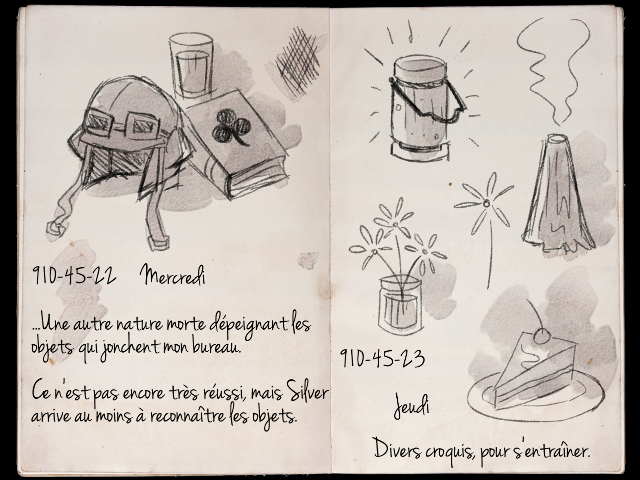 910-45-22 Mercredi
...Une autre nature morte dépeignant les
objets qui jonchent mon bureau.
Ce n'est pas encore très réussi, mais Silver
arrive au moins à reconnaître les objets.
910-45-23
Jeudi
Divers croquis, pour s'entraîner.